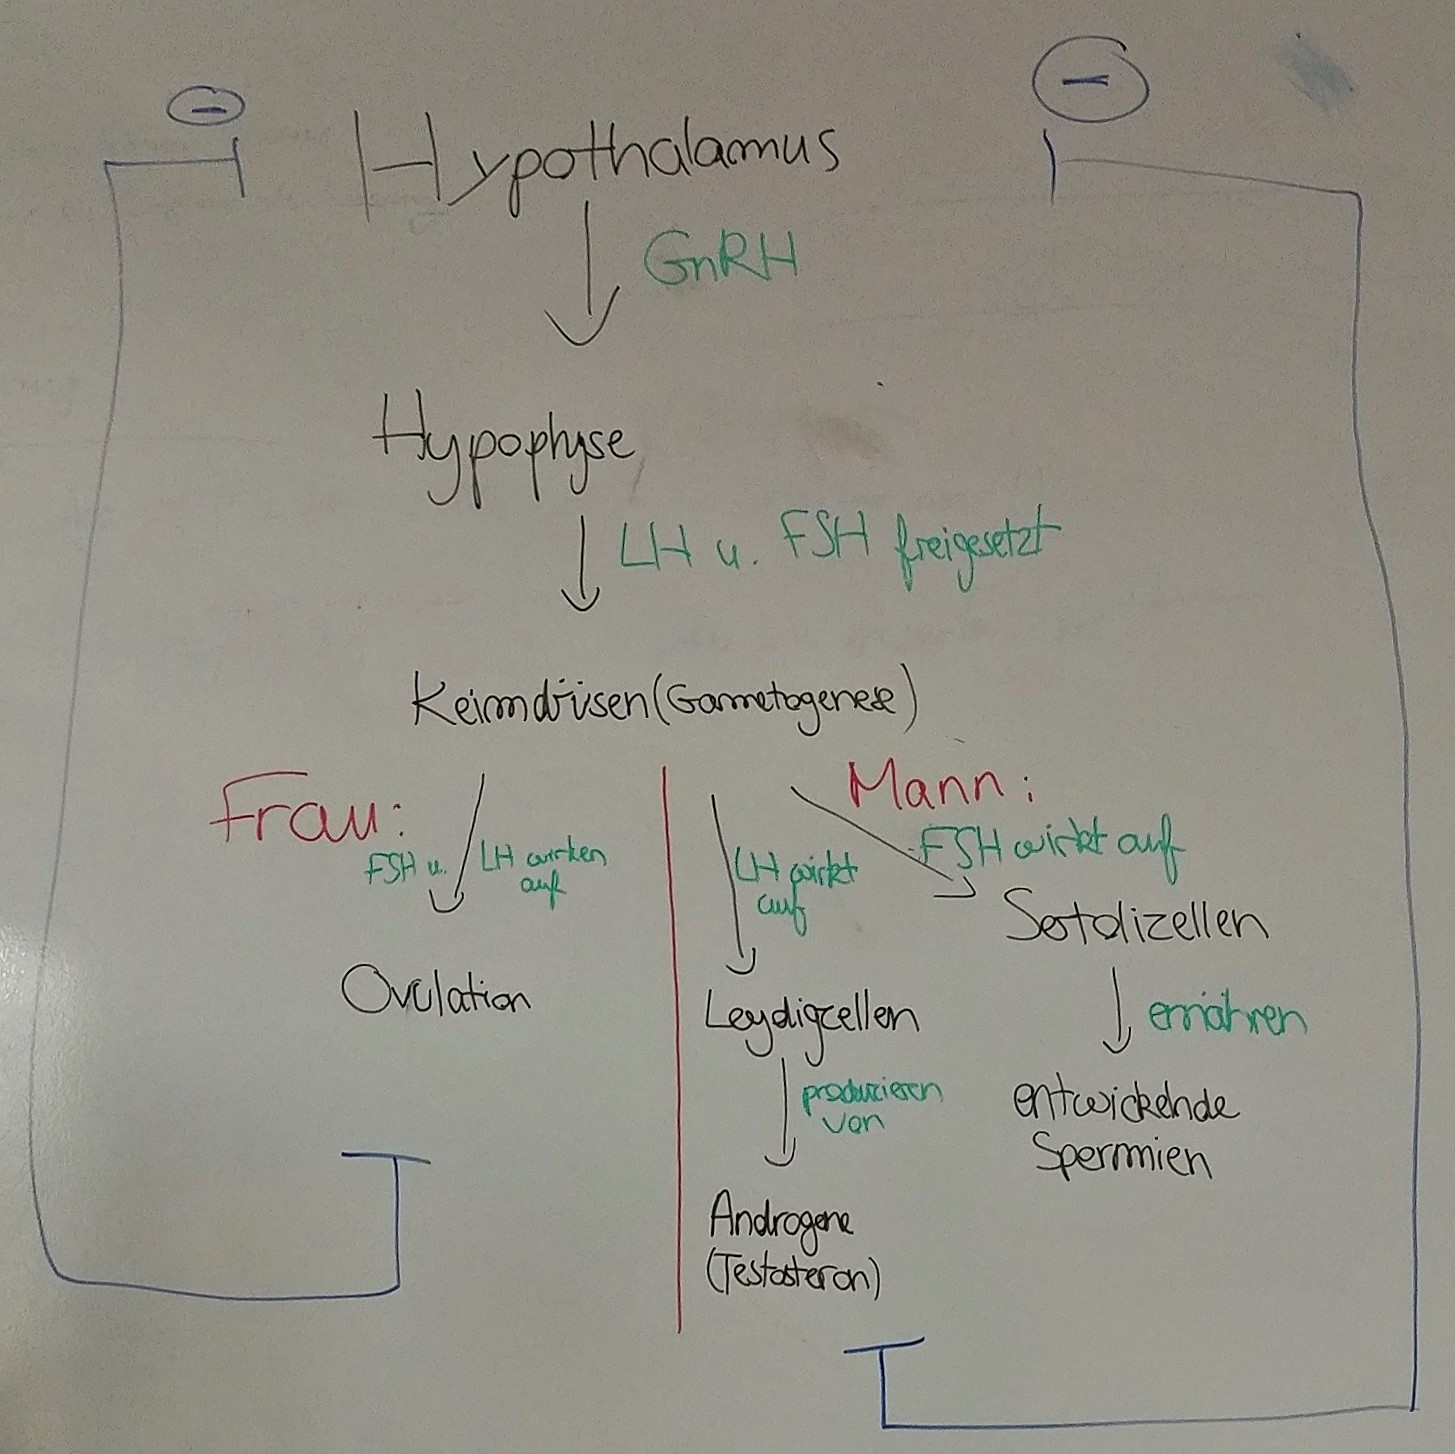 Hypothalamus
GnRH
Hypophyse
LH u. FSH freigesetzt
Keimdrüsen (Gametogenese)
Frau:
FSH u. LH wirken
auf
Ovulation
Mann:
LH wirkt
auf
Leydigzellen
produzieren
von
Androgene
(Testosteron)
FSH wirkt auf
Sertolizellen
ernähren
entwickelnde
Spermien